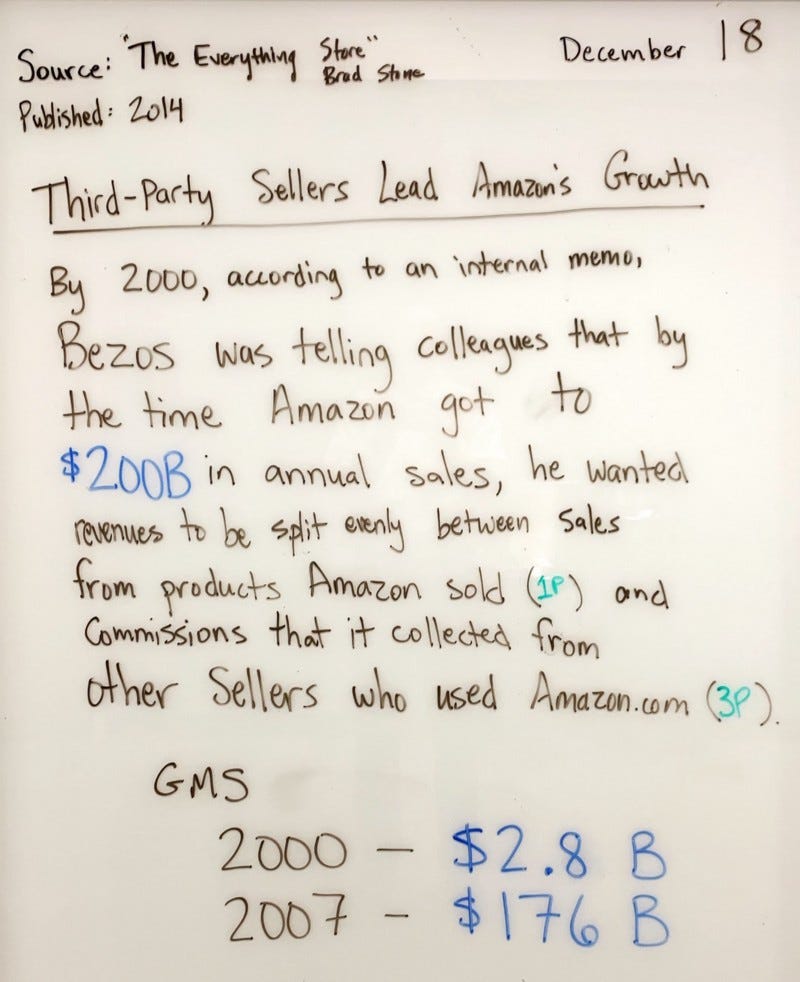 Source: "The Everything Store" December 18
Brad Stone
Published: 2014
Third-Party Sellers Lead Amazon's Growth
By 2000, according to an internal memo,
Bezos was telling colleagues that by
the time Amazon got to
$200B in annual sales, he wanted
revenues to be split evenly between Sales
from products Amazon sold (1P) and
Commissions that it collected from
other Sellers who used Amazon.com (3P).
GMS
2000 - $2.8 B
2007 - $176 B